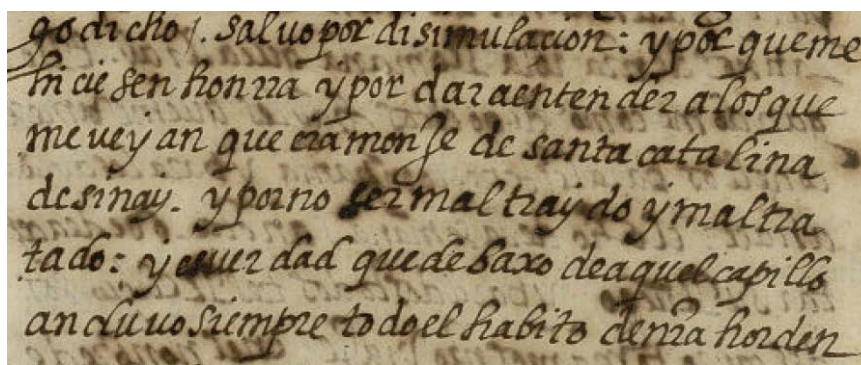 go dicho /. saluo por disimulacion: y por que me
hiciesen honrra y por dar a entender a los que
me veyan que era monje de santa catalina
de sinay. y por no ser mal traydo y maltra
tado: y es verdad que debaxo de aquel capillo
anduuo siempre todo el habito de nra horden